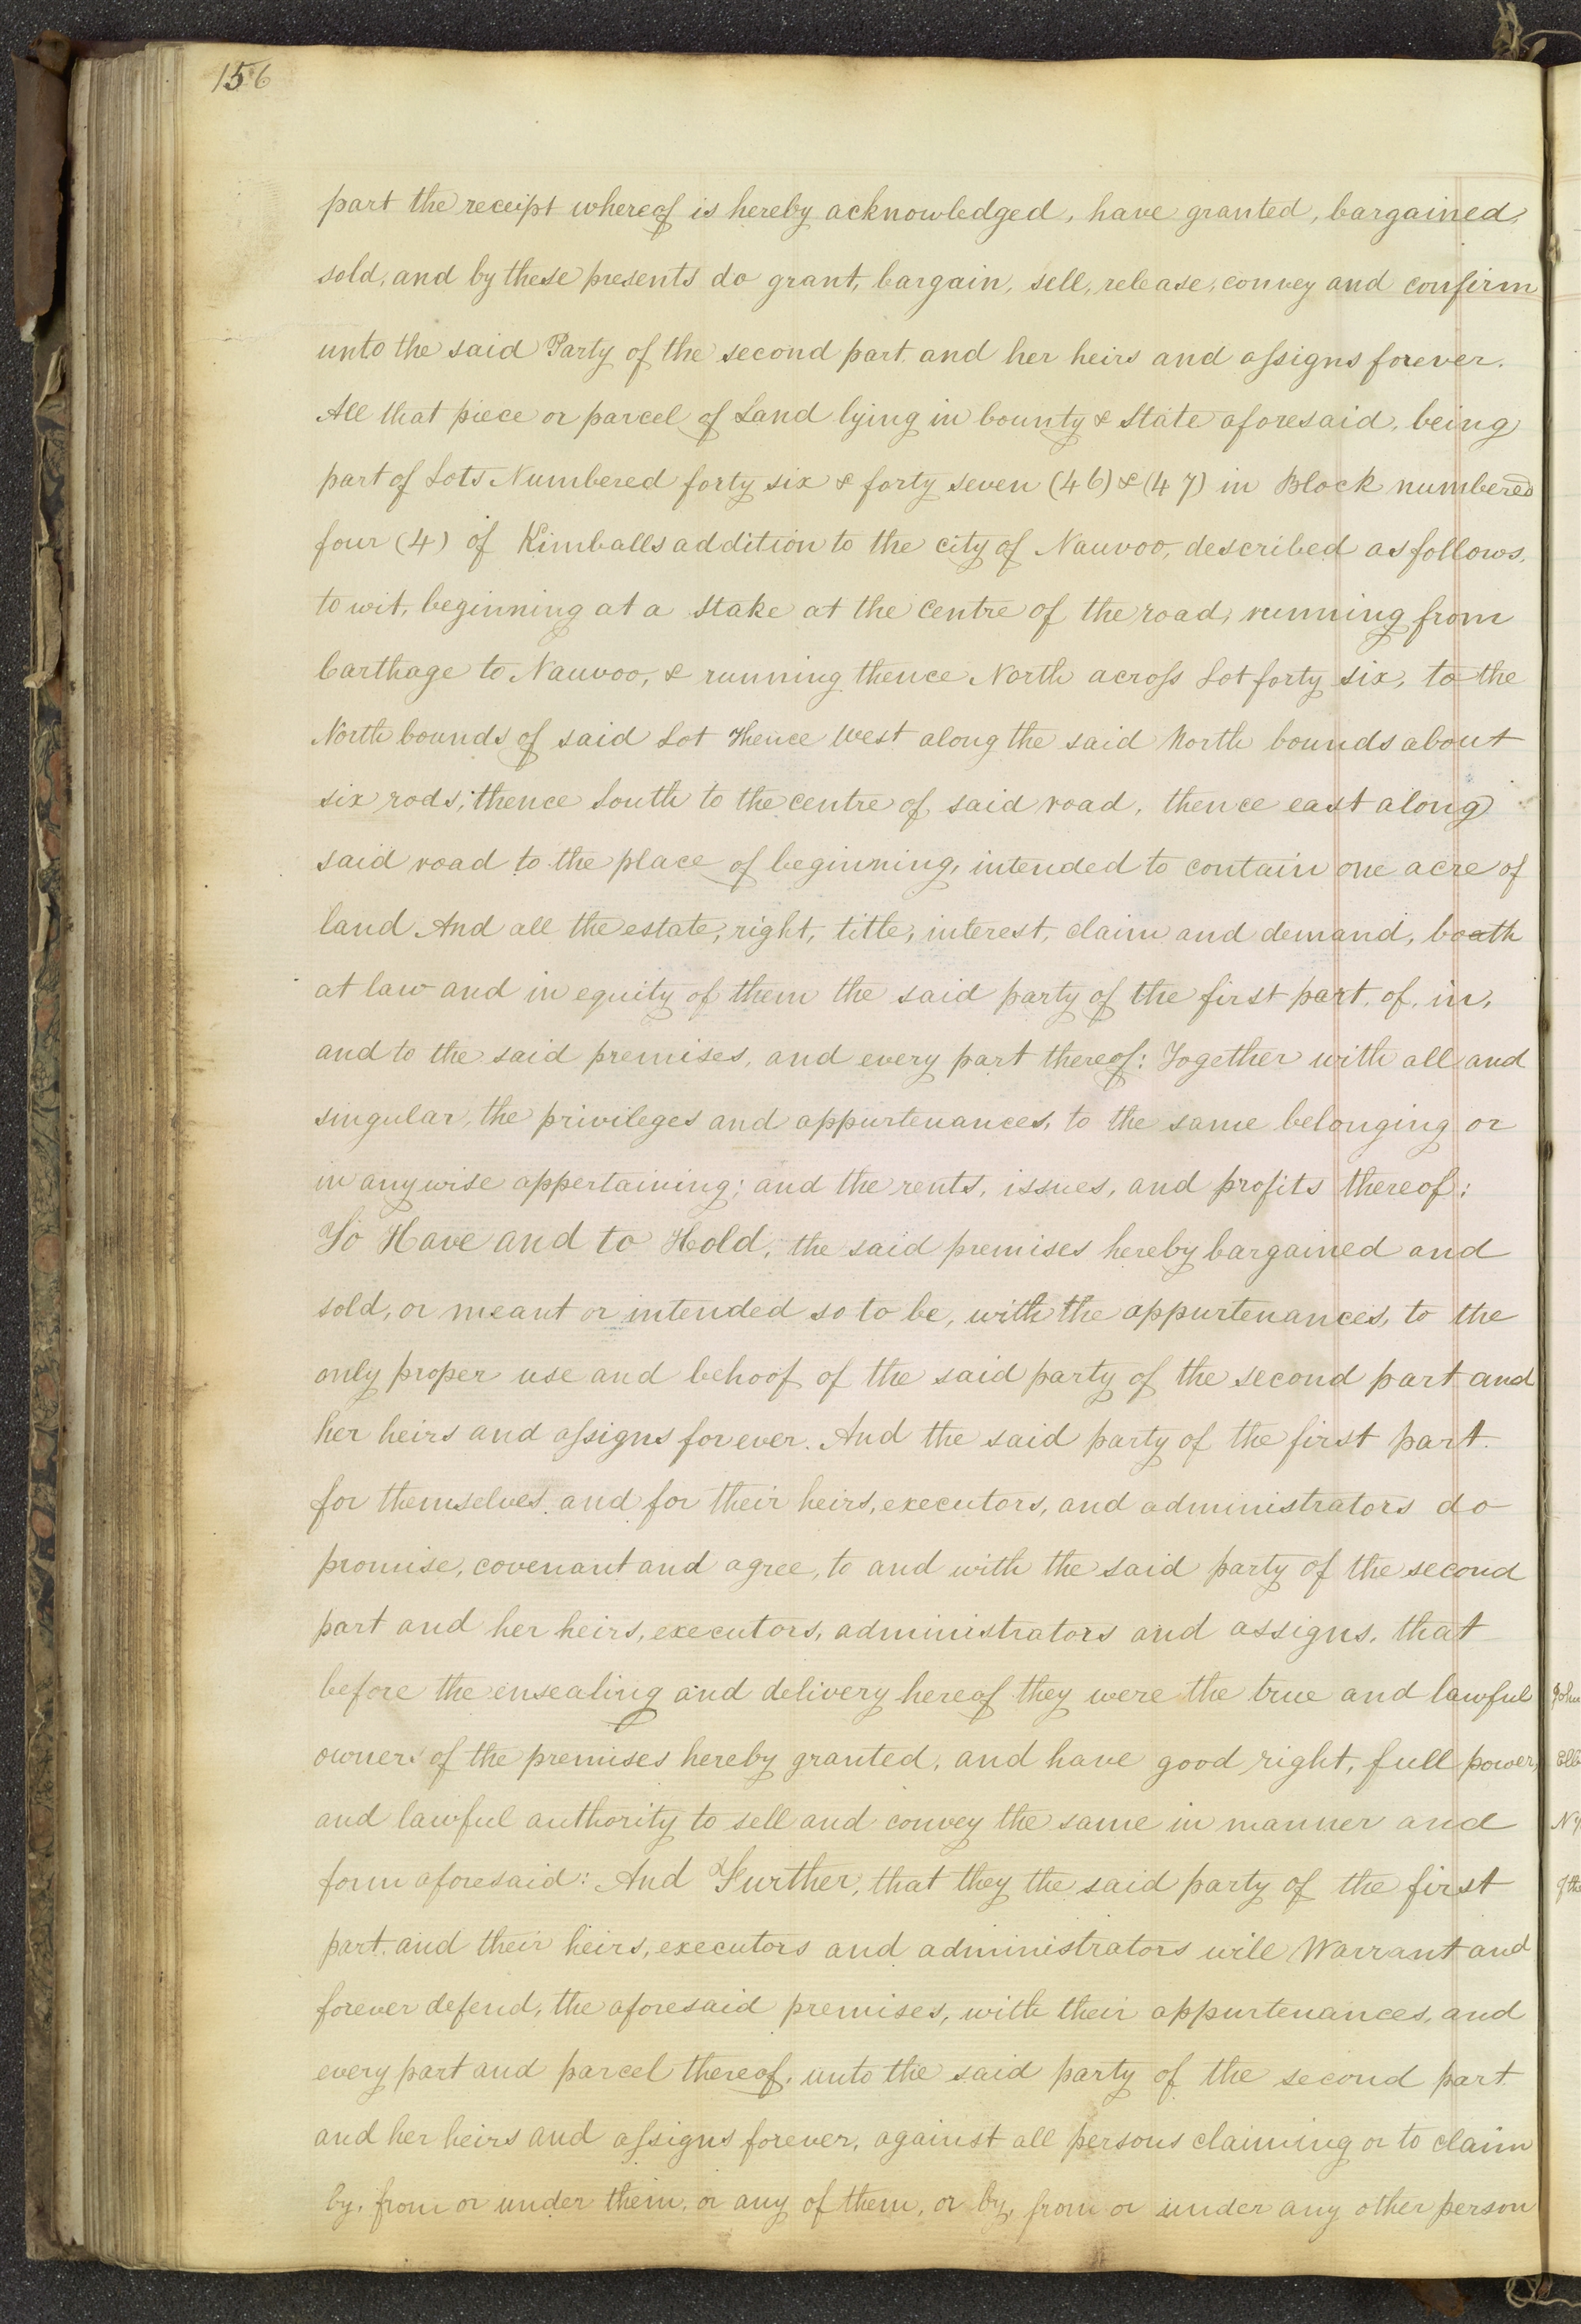 156
part the receipt whereof is hereby acknowledged, have granted, bargained,
sold, and by these presents do grant, bargain, sell, release, convey and confirm
unto the said Party of the second part. and her heirs and assigns forever.
All that piece or parcel of Land lying in County & State aforesaid, being
part of Lots Numbered forty six & forty seven (46) & (47) in Block numbered
four (4) of Kimballs addition to the city of Nauvoo, described as follows,
to wit, beginning at a Stake at the centre of the road, running from
Carthage to Nauvoo, & running thence North across Lot forty six, to the
North bounds of said Lot Thence West along the said North bounds about
six rods; thence South to the centre of said road, thence east along
said road to the place of beginning, intended to contain one acre of
land And all the estate, right, title, interest, claim and demand, boath
at law and in equity of them the said party of the first part. of, in,
and to the said premises, and every part thereof: Together with all and
singular, the privileges and appurtenances, to the same belonging or
in any wise appertaining; and the rents, issues, and profits thereof:
To Have and to Hold, the said premises hereby bargained and
sold, or meant or intended so to be, with the appurtenances, to the
only proper use and behoof of the said party of the second part and
her heirs and assigns forever. And the said party of the first part.
for themselves and for their heirs, executors, and administrators do
promise, covenant and agree, to and with the said party of the second
part and her heirs, executors, administrators and assigns, that
before the ensealing and delivery hereof they were the true and lawful
owners of the premises hereby granted, and have good right, full power,
and lawful authority to sell and convey the same in manner and
form aforesaid: And Further, that they the said party of the first
part. and their heirs, executors and administrators will Warrant and
forever defend, the aforesaid premises, with their appurtenances, and
every part and parcel thereof, unto the said party of the second part
and her heirs and assigns forever, against all persons claiming or to claim
by, from or under them, or any of them, or by, from or under any other person